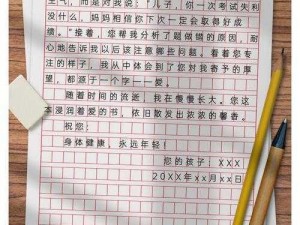 生气，而是对我说："儿子，你一次考试失利
没什么，妈妈相信你下次一定会取得好成
绩。"接着，您帮我分析了题做错的原因，耐
心地告诉我以后该注意哪些问题。看着您专
注的样子，我从中体会到了您对我寄予的厚
望，都源于一个字——爱。
随着时间的流逝，我在慢慢长大。您这
本浸润着爱的书，依旧散发出浓浓的馨香。
祝您：
身体健康，永远年轻！
您的孩子：XXX
20XX年xx月xx日